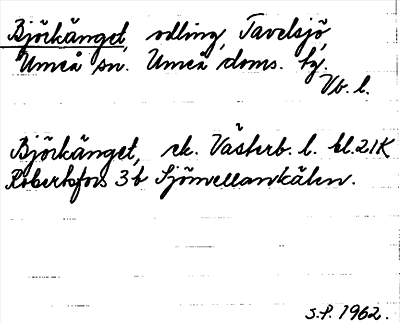 Björkänget, odling, Tavelsjö,
Umeå sn. Umeå doms. tg.
Vb. l.
Björkänget, ek. Västerb. l. bl. 21K
Robertsfors 3b Sjömellankälen.
S.P. 1962.